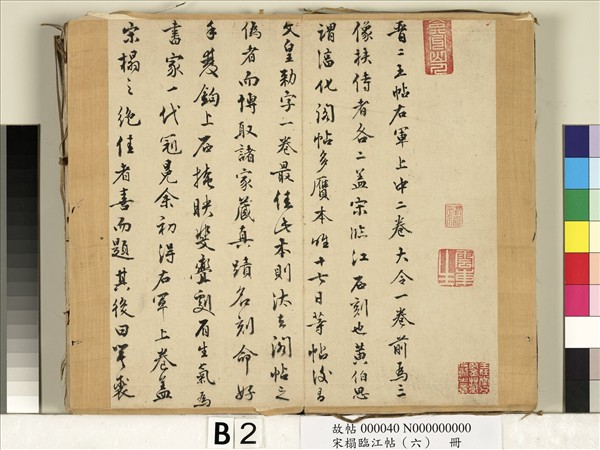 晉二王帖右軍上中二卷大令一卷前為三
像扶傳者各二蓋宋臨江石刻也黃伯思
謂淳化閣帖多贗本唯十七日等帖後
文皇勅字一卷最佳此本則汰去閣帖之
偽者而博取諸家藏真蹟名刻命好
手雙鉤上石掩映斐亹則有生氣為
書家一代冠冕余初得右軍上卷蓋
宋榻之絕佳者喜而題其後曰
B2
故帖 000040 N000000000
宋榻臨江帖（六） 冊